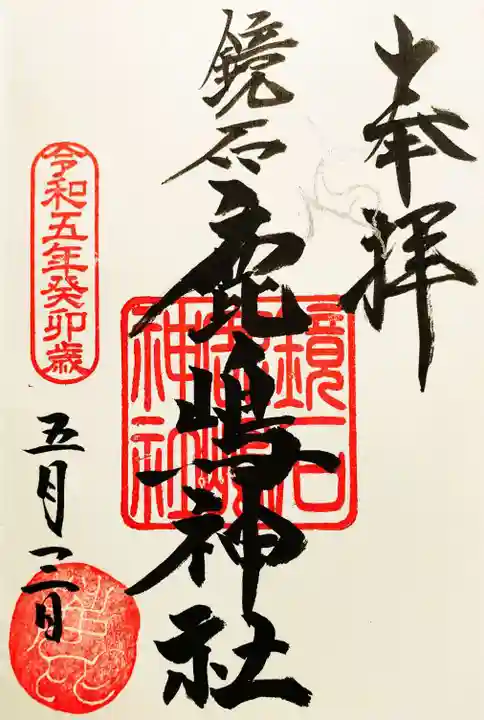 奉拝
鏡石鹿嶋神社
鏡石
鹿嶋
神社
令和五年癸卯歳
五月三日